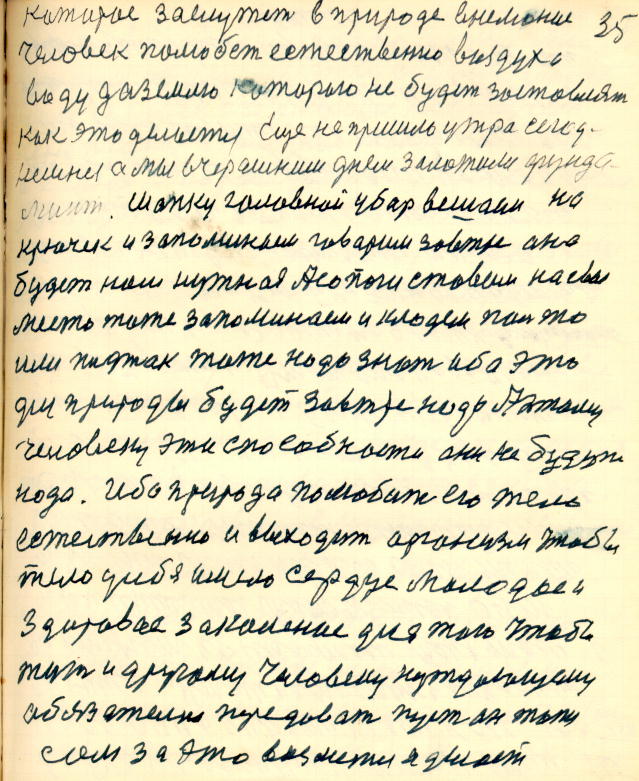 которое заслужет в природе внемание 35
человек полюбет естественно воздух а
воду да землю которого не будет заставлят
как это делается Еще не пришло утра сегод-
нешнея а мы вчерашним днем заложили фунда-
мент. Шапку головной убар вешаем на
крючек и запоминаем говарим завтре она
будет нам нужная А сопоги ставем на свое
место тоже запоминаем и кладем польто
или пиджак тоже надо знат иба это
для природы будет завтре надо А этому
человеку эти способности они не будут
нада. Ибо природа полюбит его тело
естественно и выходит организм чтобы
тело у себя имело Сердце молодое и
здоровае закаленое для того чтобы
жит и другому человеку нуждающему
обязательно передоват пуст он тоже
сам за это возметця делает